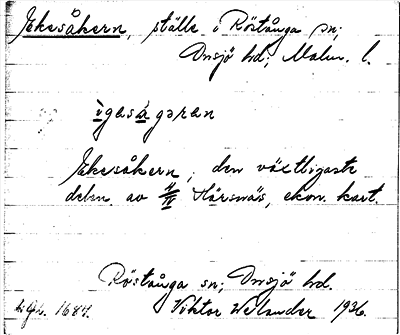 Ekesåkern, ställe i Röstånga sn;
Onsjö hd; Malm. l.
ìgasàgəran
Ekesåkern, den västligaste
delen av 4/II Härsnäs, ekon. kart.
Röstånga sn; Onsjö hd.
1687. Viktor Welander 1936.